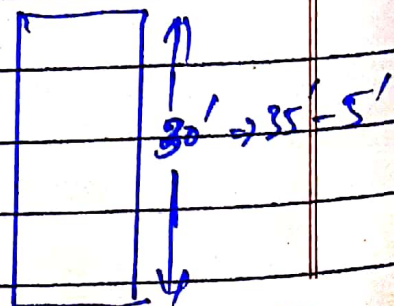 30' => 35' - 5'